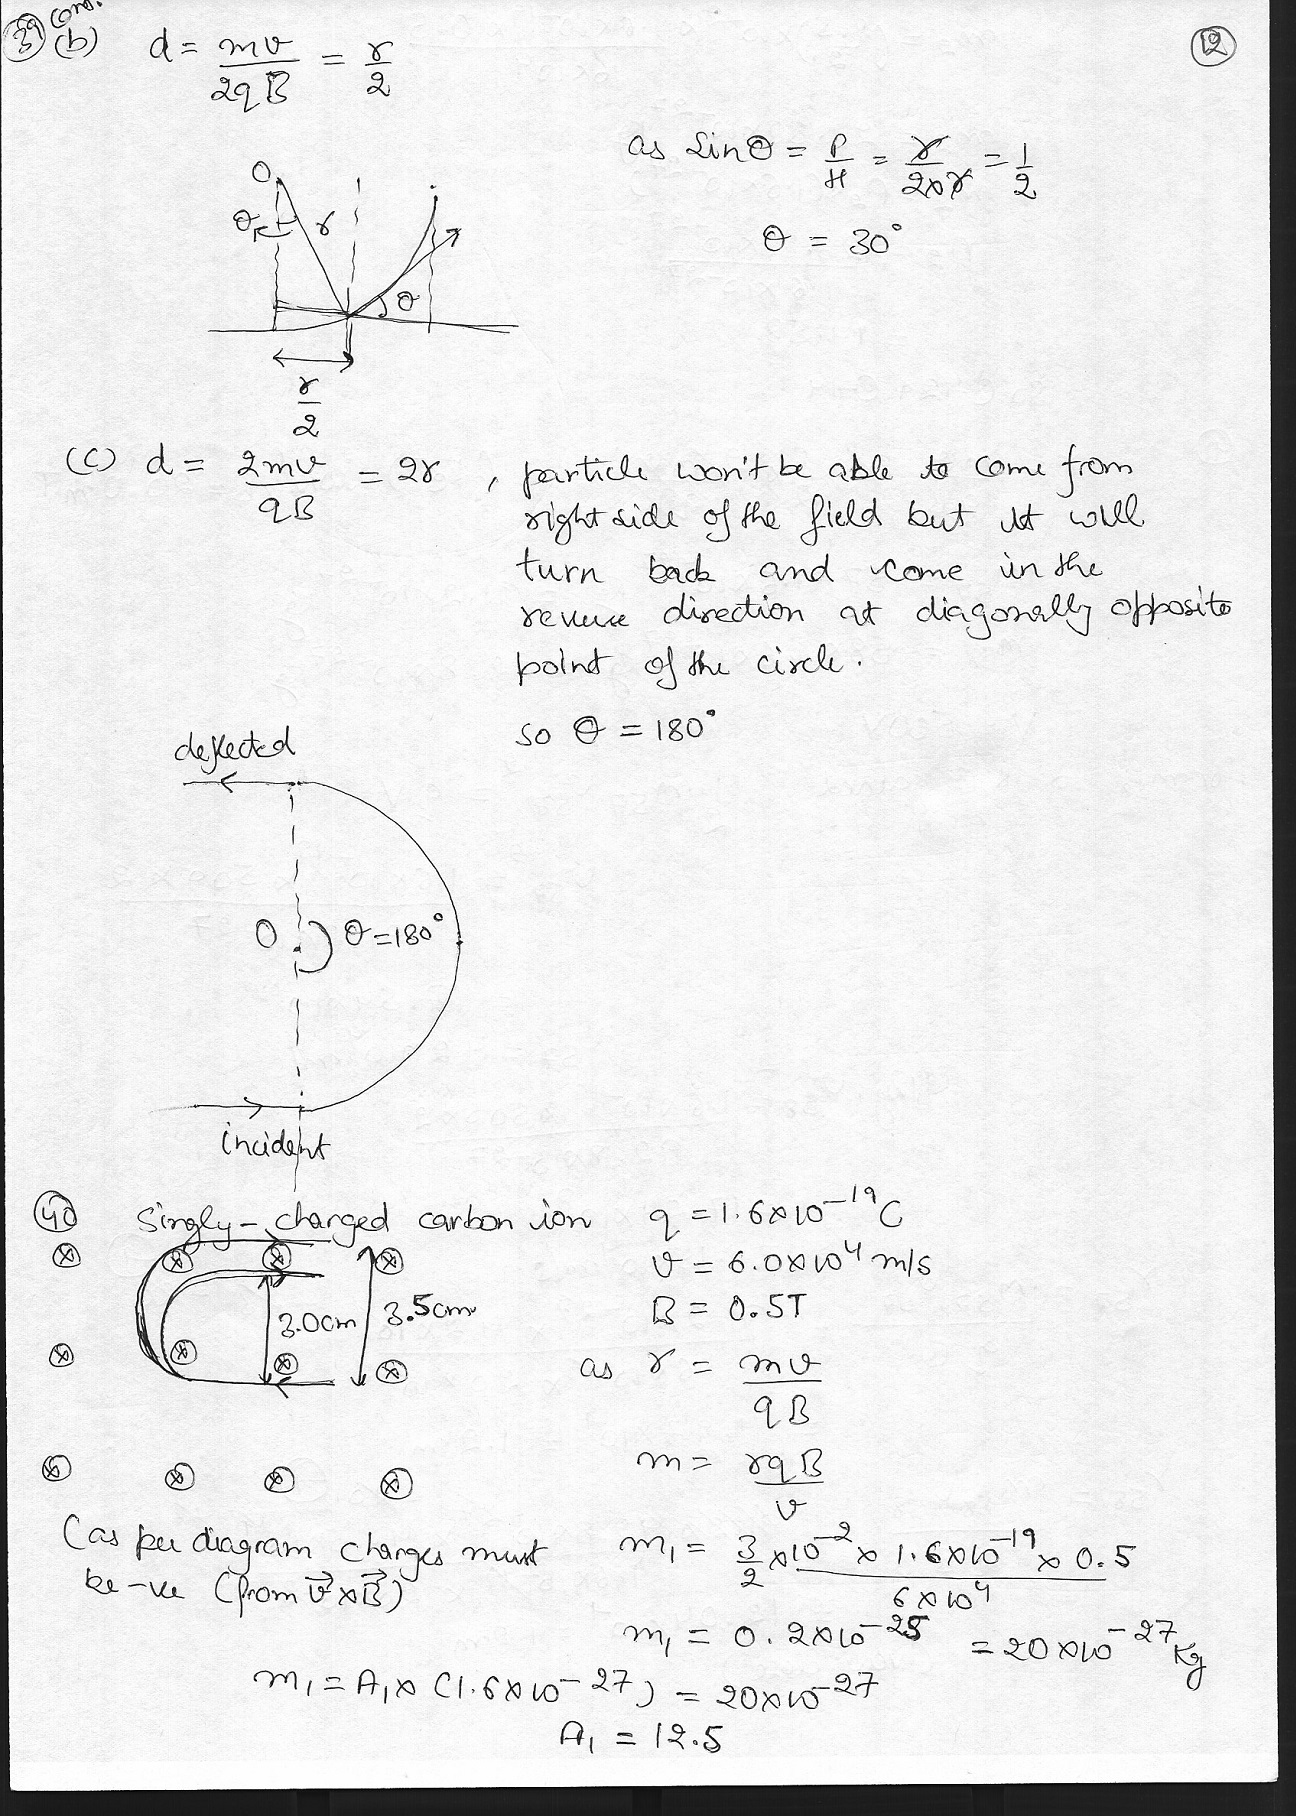 39 cont.
(b) d = mv/2qB = r/2
12
as Sinθ = P/H = r/2×r = 1/2
θ = 30°
O
θ r
θ
r/2
(c) d = 2mv/qB = 2r , particle won't be able to come from
right side of the field but it will
turn back and come in the
reverse direction at diagonally opposite
point of the circle.
so θ = 180°
deflected
O θ = 180°
incident
40 Singly-charged carbon ion q = 1.6×10⁻¹⁹ C
v = 6.0×10⁴ m/s
3.0cm 3.5cm B = 0.5T
as r = mv/qB
m = rqB/v
(as per diagram charges must
be -ve (from v⃗×B⃗)
m₁ = 3/2 ×10⁻² × 1.6×10⁻¹⁹ × 0.5 / 6×10⁴
m₁ = 0.2×10⁻²⁵ = 20×10⁻²⁷ Kg
m₁ = A₁× (1.6×10⁻²⁷) = 20×10⁻²⁷
A₁ = 12.5